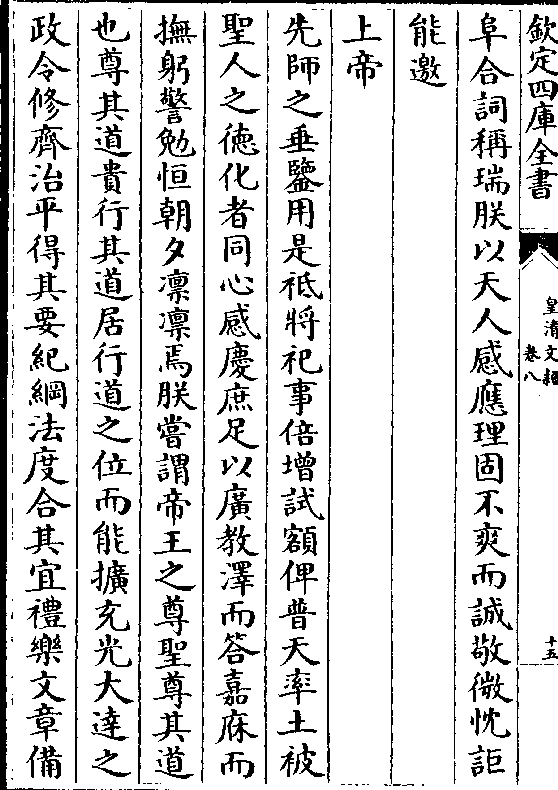 欽定四庫全書
皇清文穎
卷八
十五
阜合詞稱瑞朕以天人感應理固不爽而誠敬微忱詎
能邀
上帝
先師之垂鑒用是祇將祀事倍增試額俾普天率土被
聖人之德化者同心感慶庶足以廣教澤而答嘉庥而
撫躬警勉恒朝夕凛凛焉朕嘗謂帝王之尊聖尊其道
也尊其道貴行其道居行道之位而能擴充光大達之
政令修齊治平得其要紀綱法度合其宜禮樂文章備